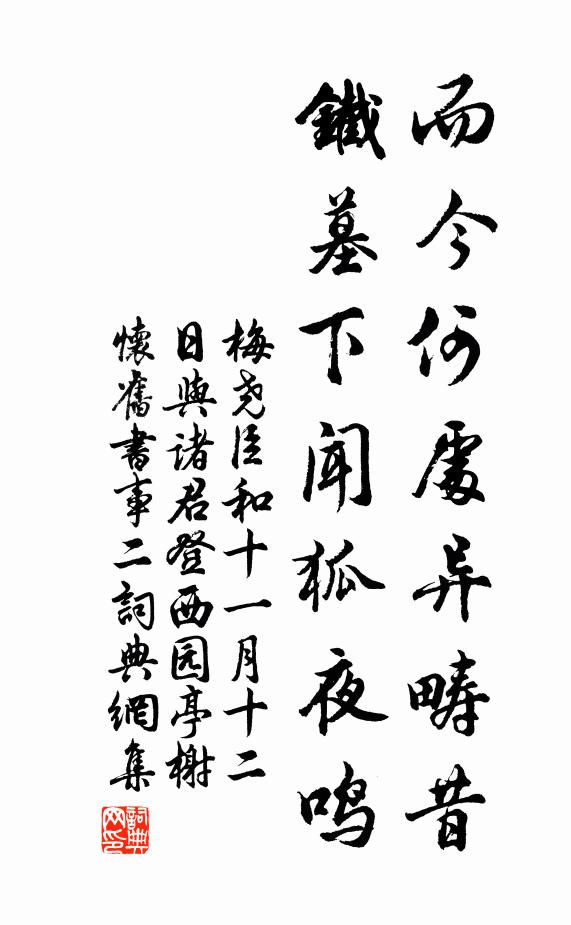 而今何處异畴昔
鐵墓下闻狐夜鸣
梅尧臣和十一月十二
日與诸君登西园亭榭
懷舊書事二詞典網集
詞典网印